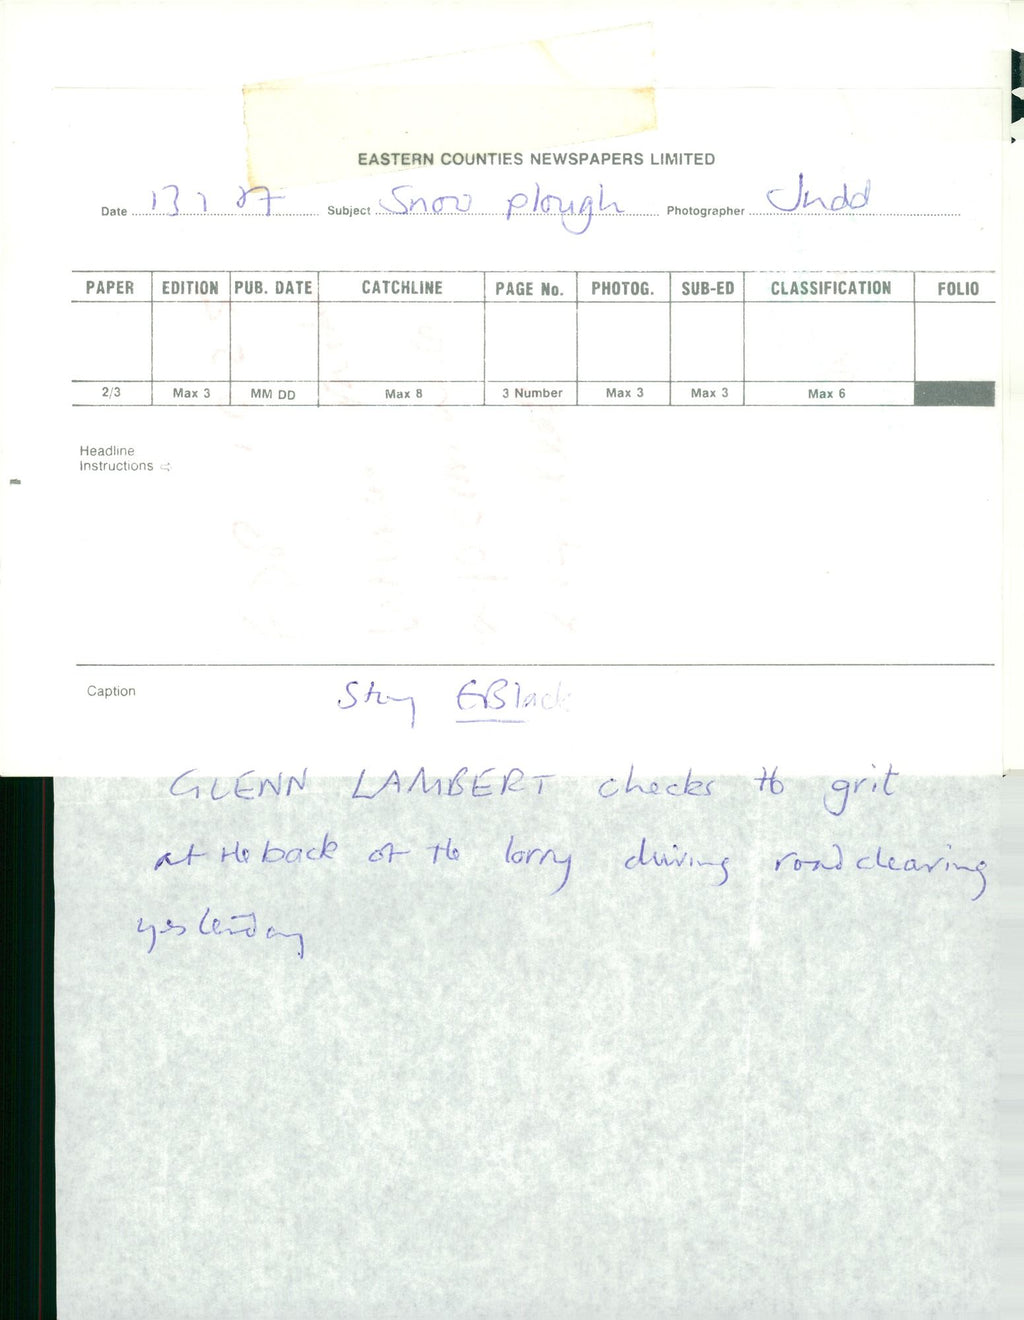 EASTERN COUNTIES NEWSPAPERS LIMITED
Date 13 1 87 Subject Snow plough Photographer Judd
PAPER EDITION PUB. DATE CATCHLINE PAGE No. PHOTOG. SUB-ED CLASSIFICATION FOLIO
2/3 Max 3 MM DD Max 8 3 Number Max 3 Max 3 Max 6
Headline
Instructions
Caption Story EBlack
GLENN LAMBERT checks the grit
at the back of the lorry during road clearing
yesterday